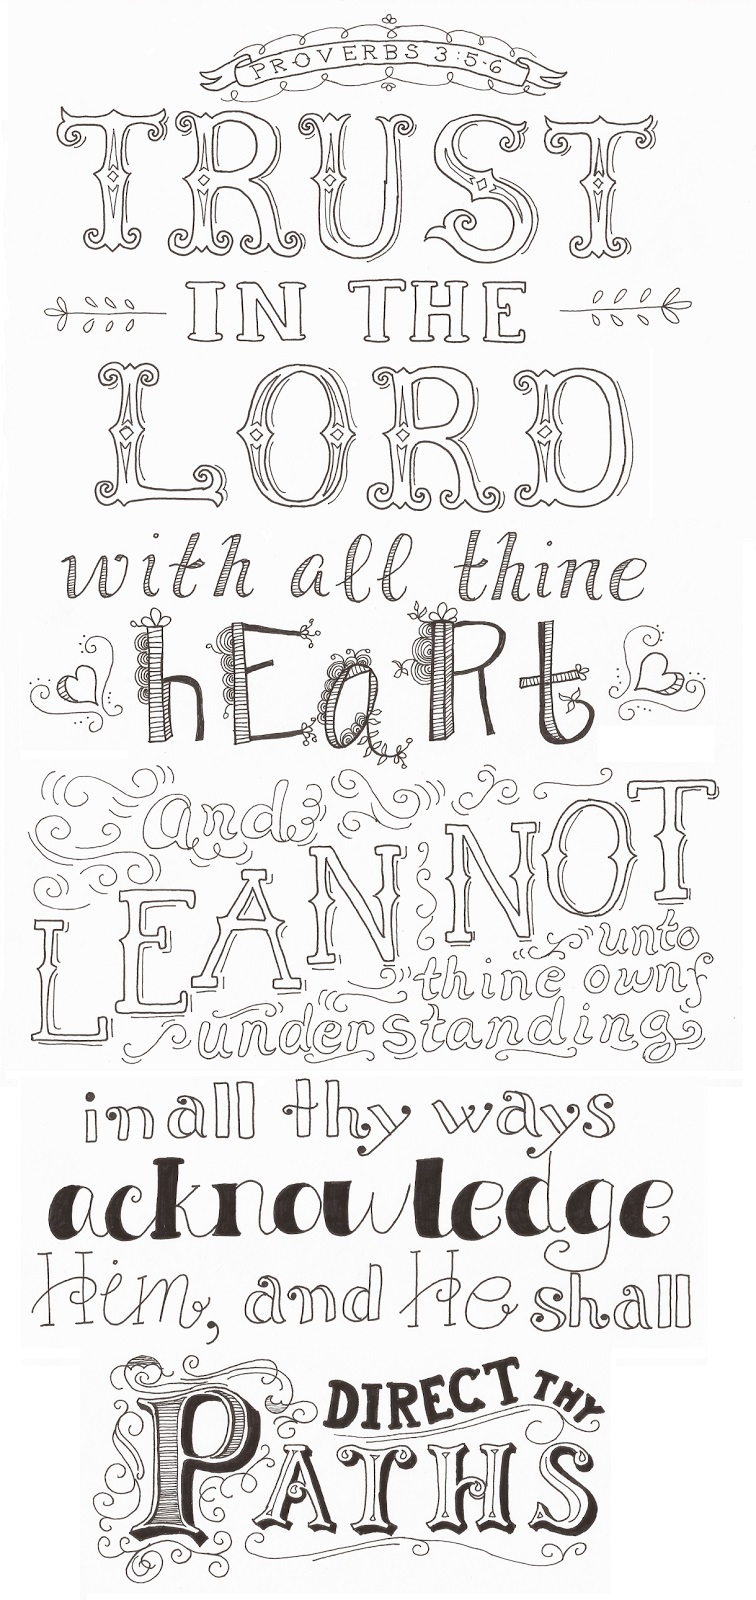 PROVERBS 3:5-6
TRUST
IN THE
LORD
with all thine
hEaRt
and
LEAN NOT
unto
thine own
understanding
in all thy ways
acknowledge
Him, and He shall
DIRECT THY
PATHS